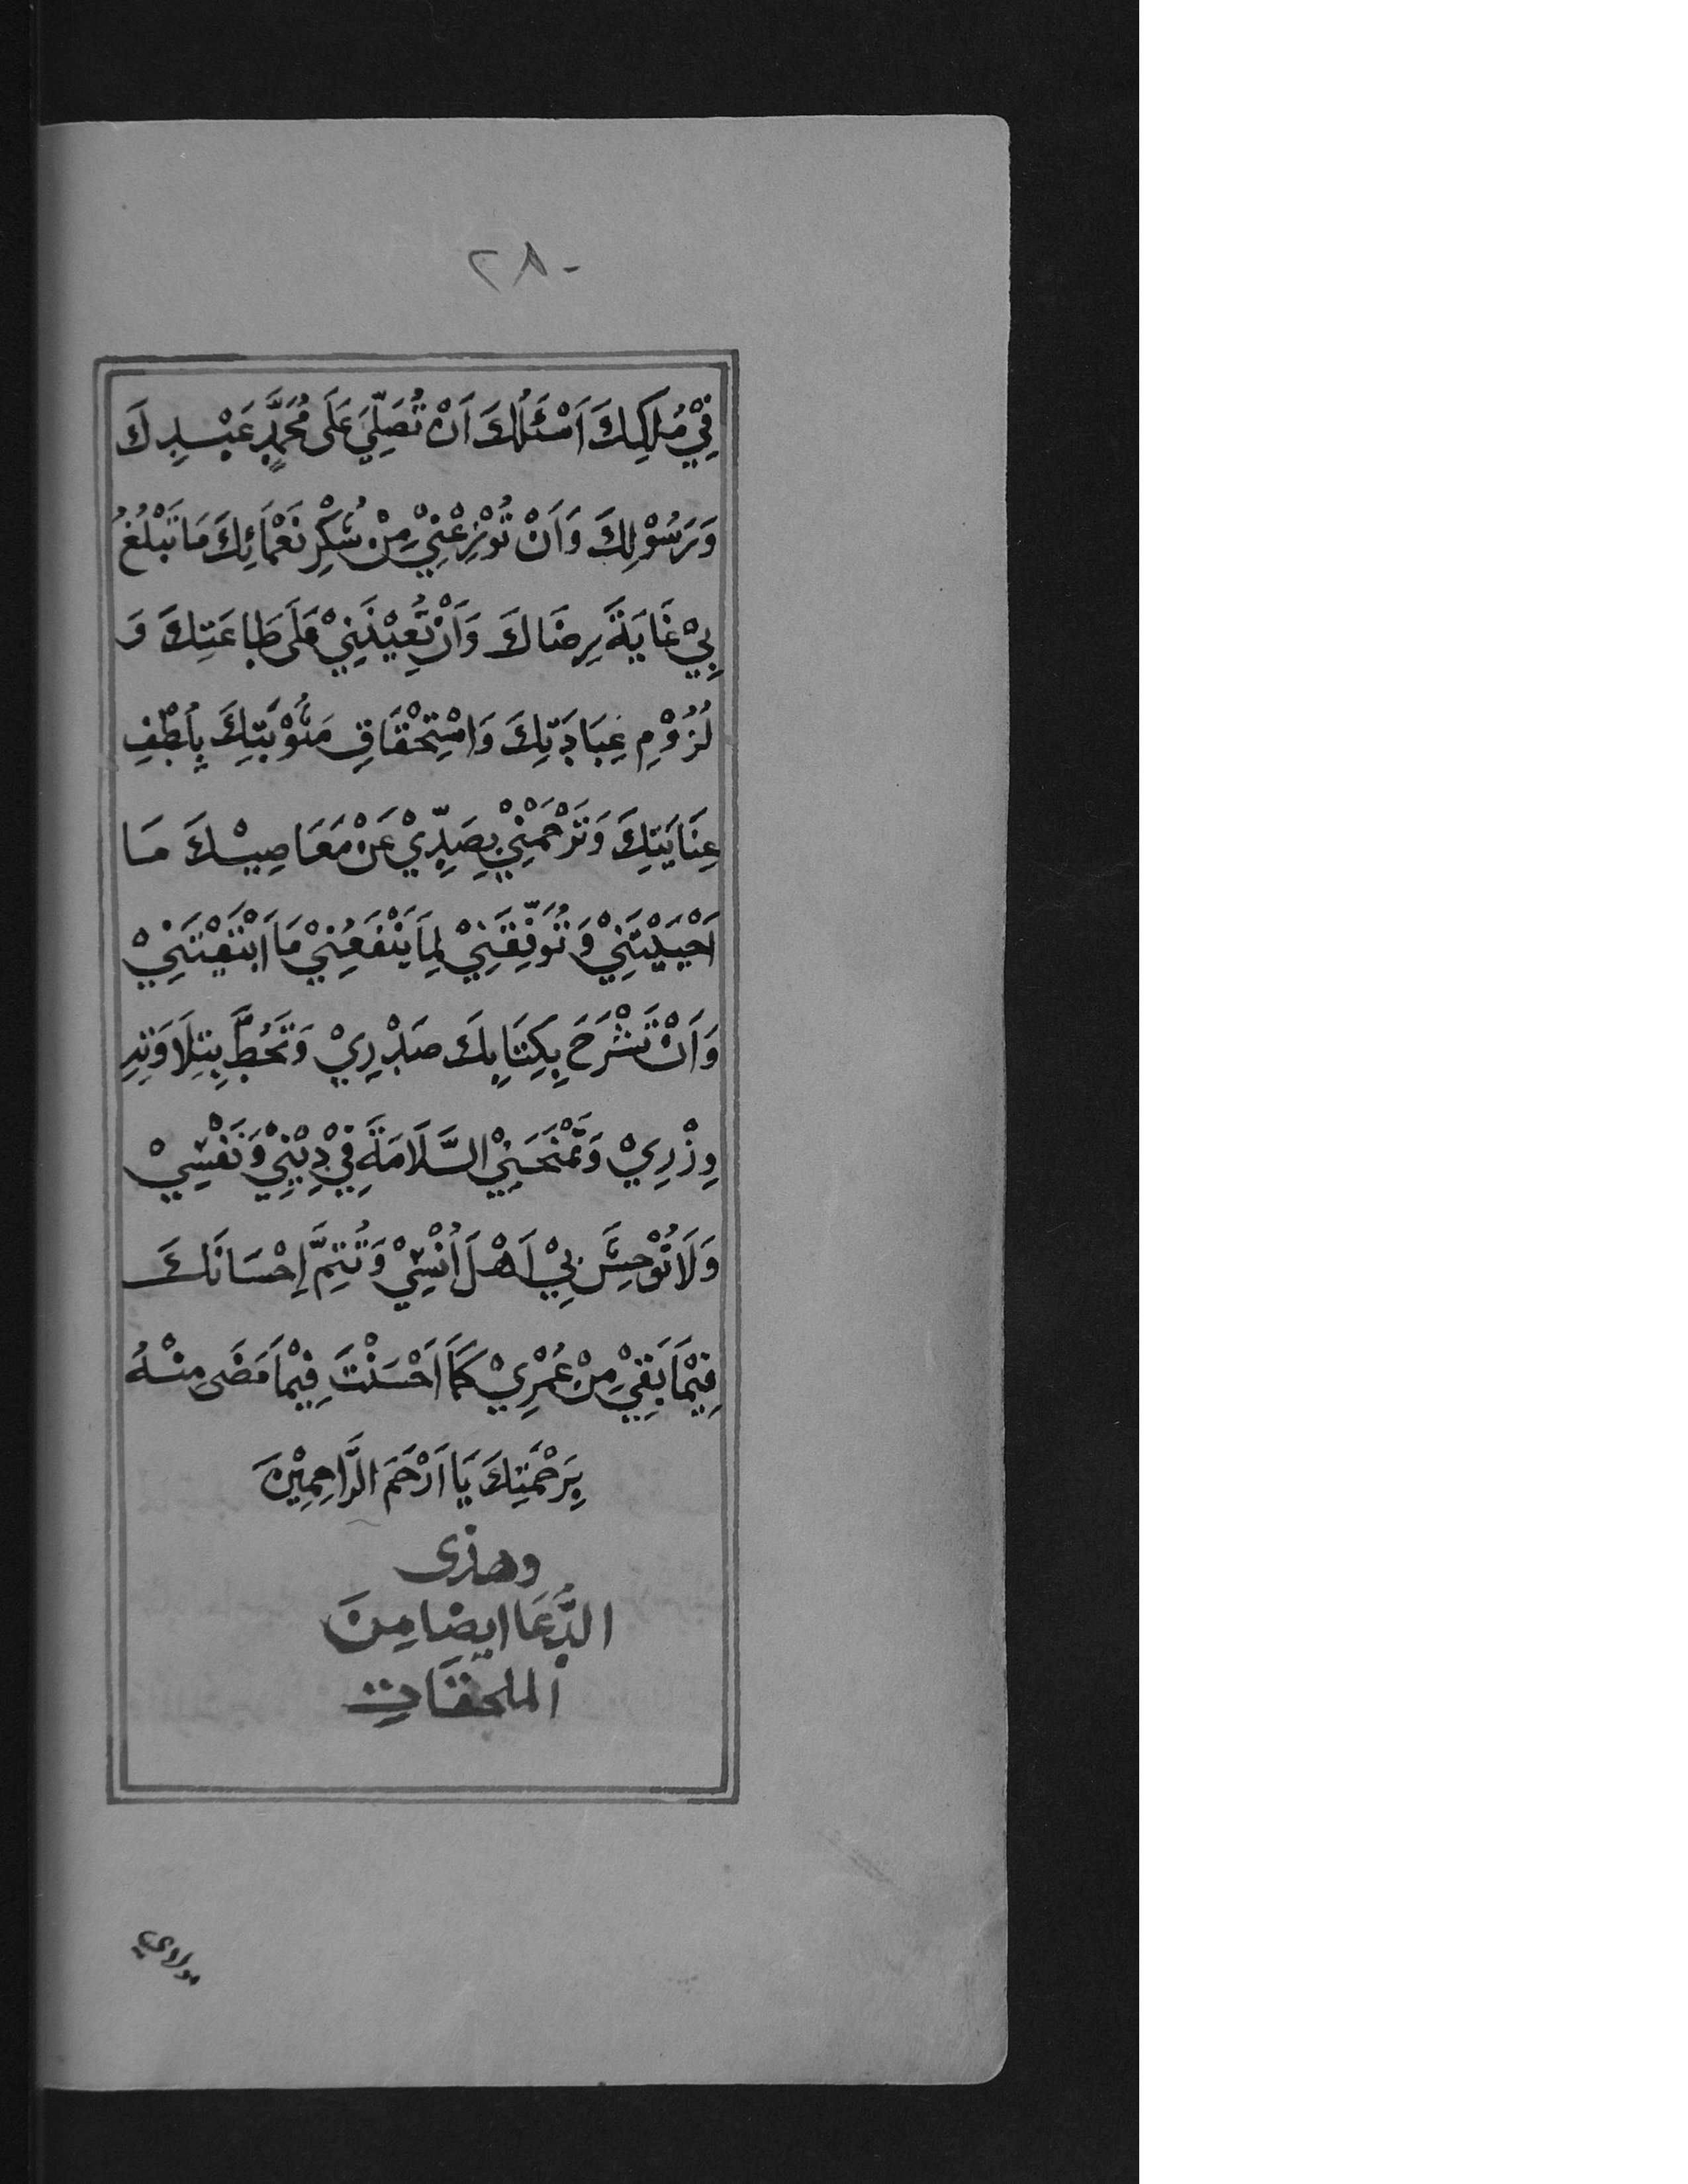 ٢٨٠
فِيْ مُلْكِكَ اَسْئَلُكَ اَنْ تُصَلِّيَ عَلَى مُحَمَّدٍ عَبْدِكَ
وَرَسُوْلِكَ وَاَنْ تُوْزِعْنِيْ مِنْ شُكْرِ نَعْمَائِكَ مَا تَبْلُغُ
بِيْ غَايَةَ رِضَاكَ وَاَنْ تُعِيْنَنِيْ عَلَى طَاعَتِكَ وَ
لُزُوْمِ عِبَادَتِكَ وَاسْتِحْقَاقِ مَثُوْبَتِكَ بِلُطْفِ
عِنَايَتِكَ وَتَرْحَمَنِيْ بِصَدِّيْ عَنْ مَعَاصِيْكَ مَا
اَحْيَيْتَنِيْ وَتُوَفِّقَنِيْ لِمَا يَنْفَعُنِيْ مَا اَبْقَيْتَنِيْ
وَاَنْ تَشْرَحَ بِكِتَابِكَ صَدْرِيْ وَتَحُطَّ بِتِلَاوَتِهِ
وِزْرِيْ وَتَمْنَحَنِيْ السَّلَامَةَ فِيْ دِيْنِيْ وَنَفْسِيْ
وَلَا تُوْحِشَ بِيْ اَهْلَ اُنْسِيْ وَتُتِمَّ اِحْسَانَكَ
فِيْمَا بَقِيَ مِنْ عُمْرِيْ كَمَا اَحْسَنْتَ فِيْمَا مَضَى مِنْهُ
بِرَحْمَتِكَ يَا اَرْحَمَ الرَّاحِمِيْنَ
وهذى
الدُّعَا ايضا مِنَ
الملحقَاتِ
مولاي